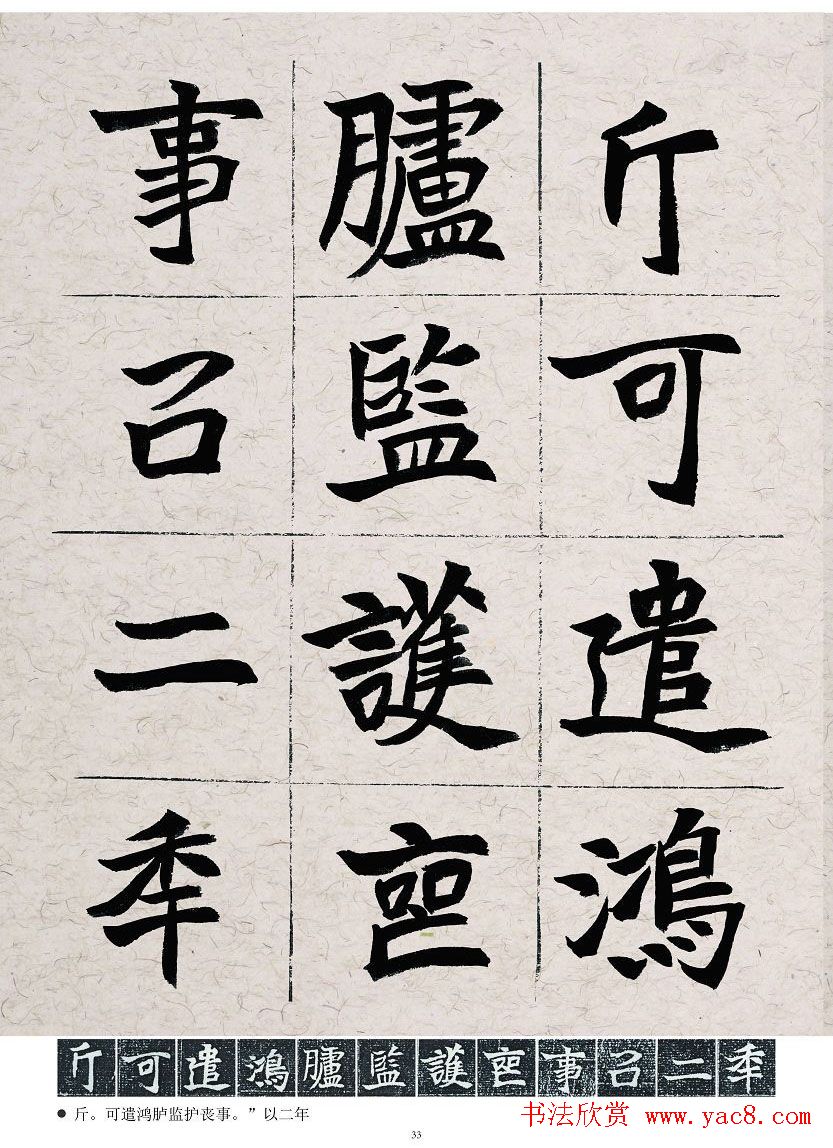 斤可遣鴻
臚監護喪
事以二秊
斤可遣鴻臚監護喪事以二秊
● 斤。可遣鸿胪监护丧事。”以二年
书法欣赏 www.yac8.com
33